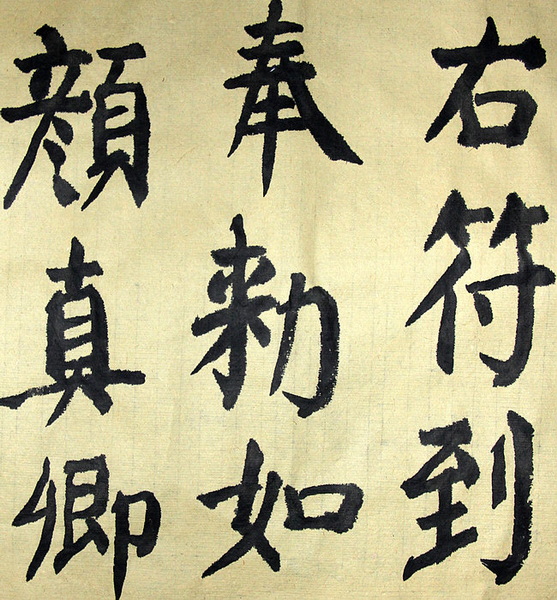 右符到
奉勅如
顔真卿